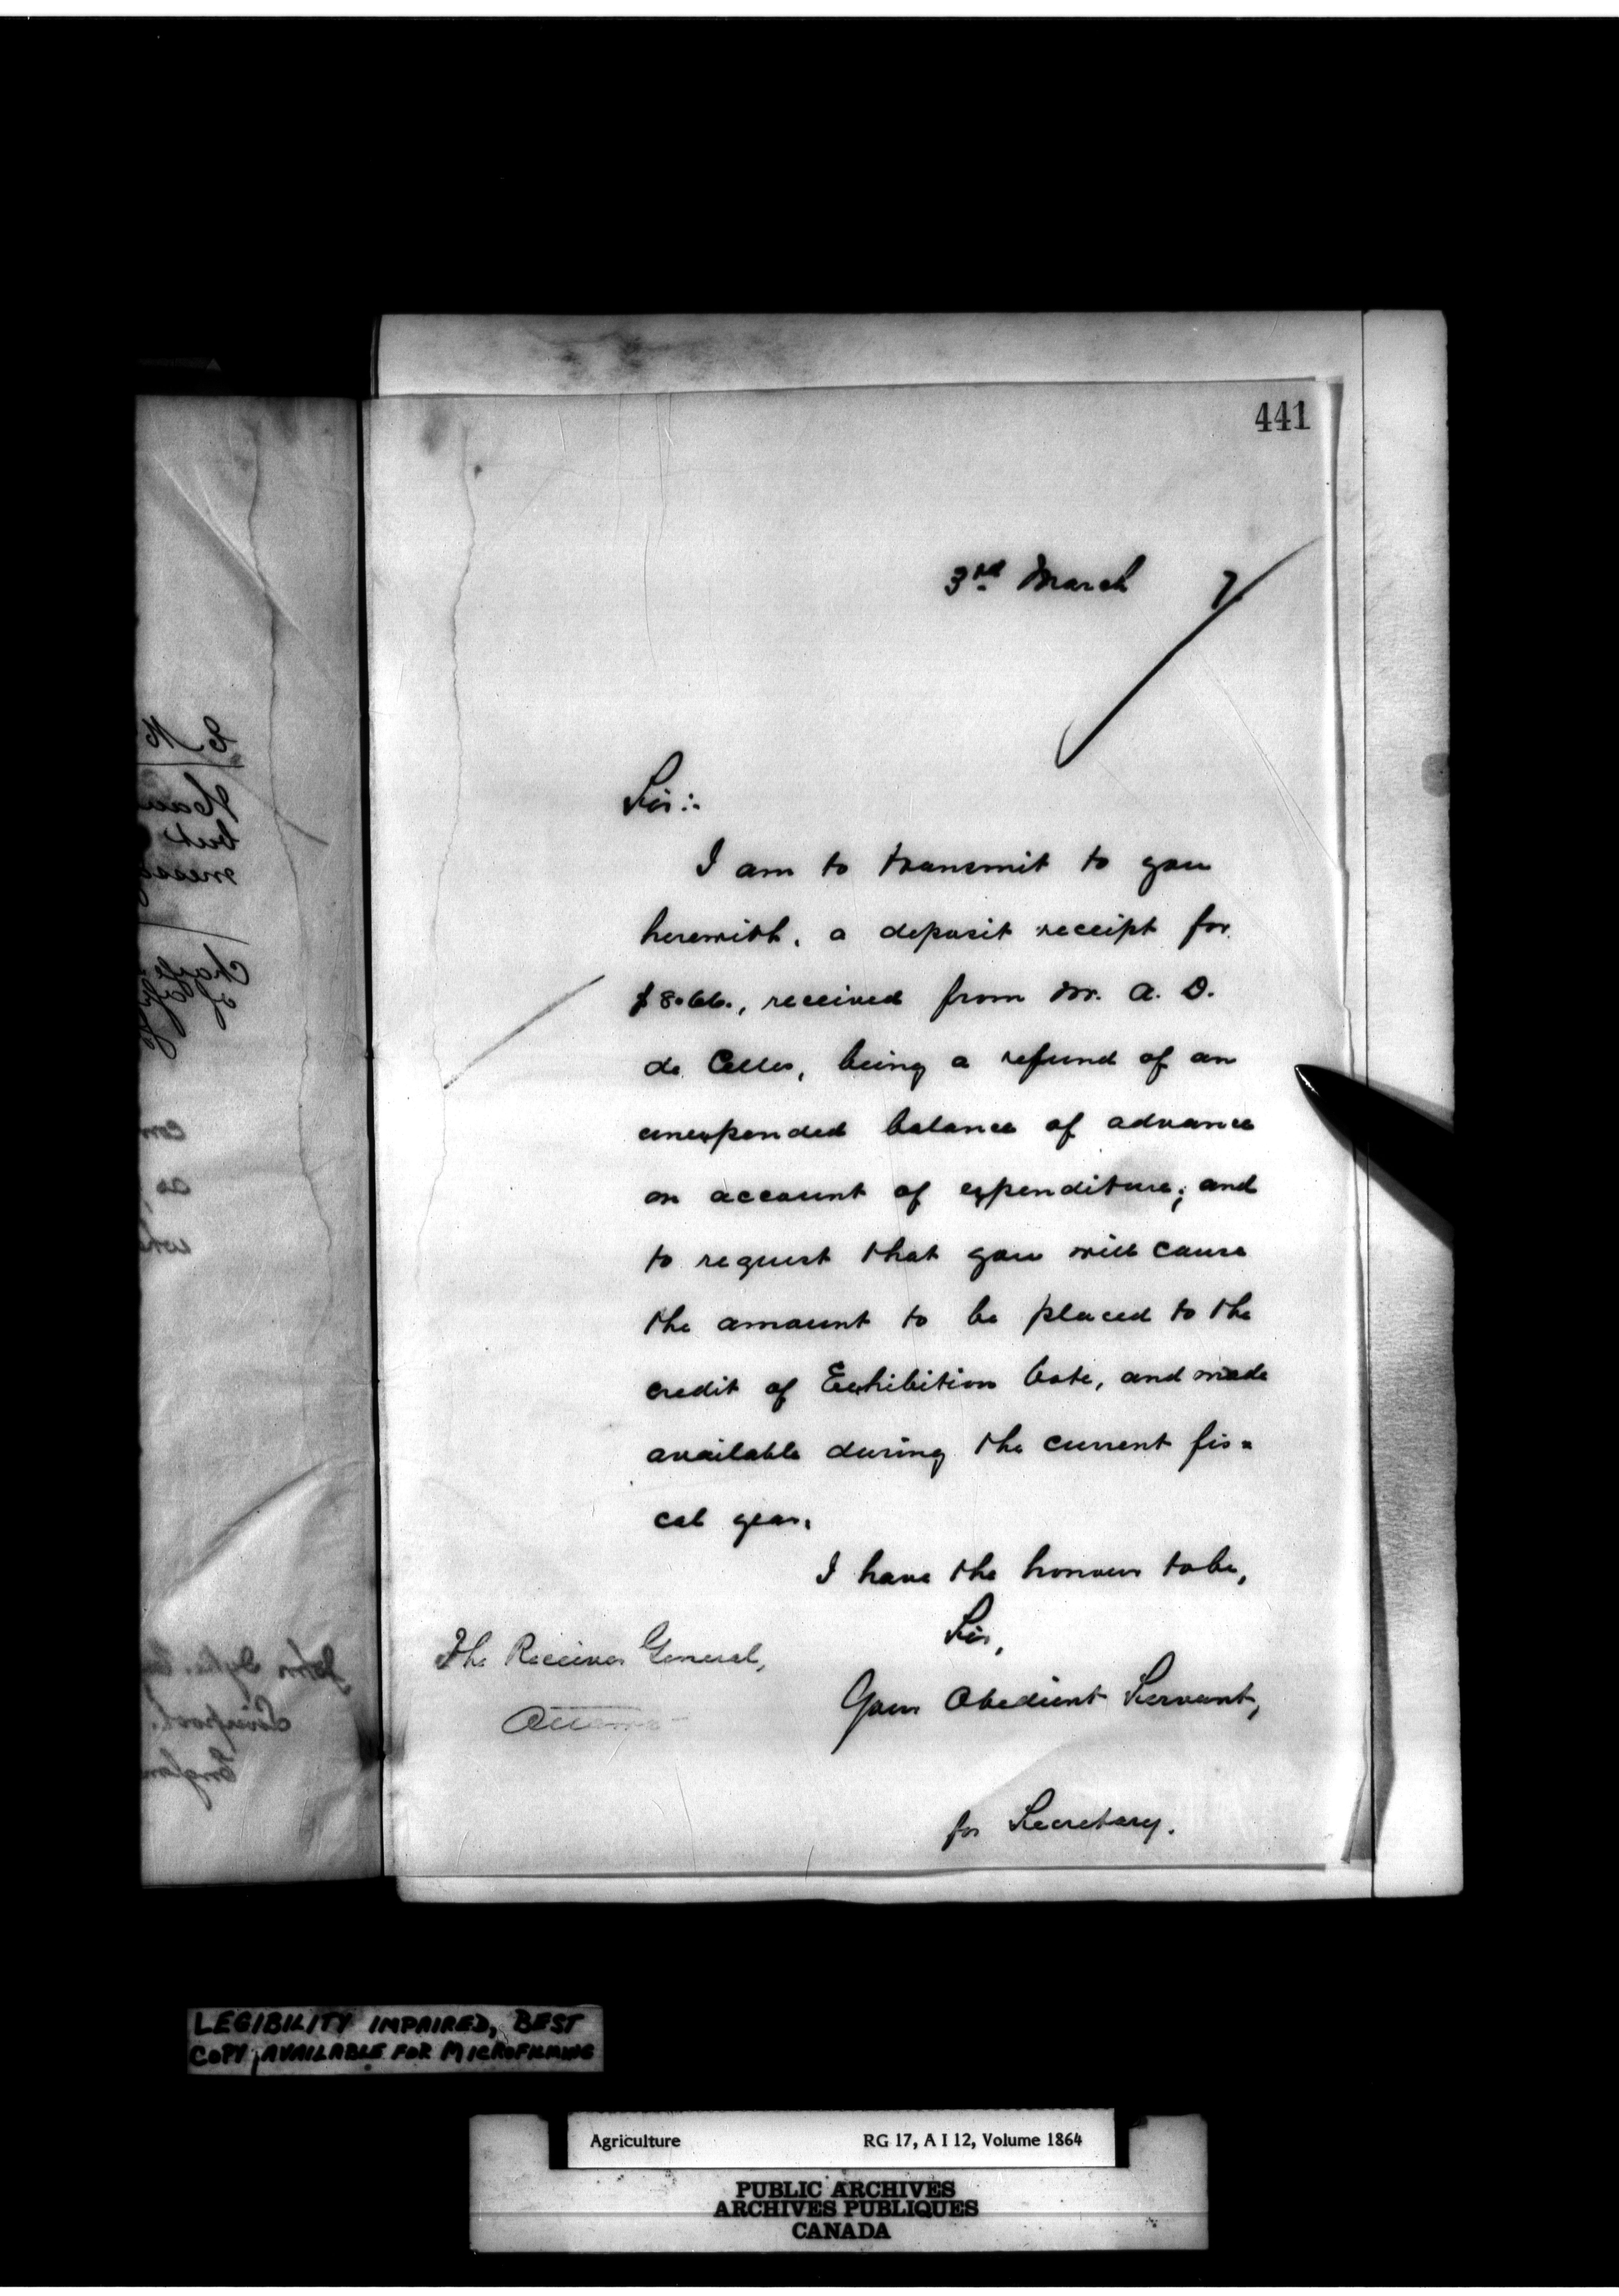 441
3rd March 7.
Sir:-
I am to transmit to you
herewith, a deposit receipt for
$8.66., received from Mr. A. D.
de Celles, being a refund of an
unexpended balance of advance
on account of expenditure; and
to request that you will cause
the amount to be placed to the
credit of Exhibition Vote, and made
available during the current fis=
cal year.
I have the honour to be,
Sir,
Your Obedient Servant,
The Receiver General,
Ottawa
for Secretary.
LEGIBILITY IMPAIRED, BEST
COPY AVAILABLE FOR MICROFILMING
Agriculture RG 17, A I 12, Volume 1864
PUBLIC ARCHIVES
ARCHIVES PUBLIQUES
CANADA